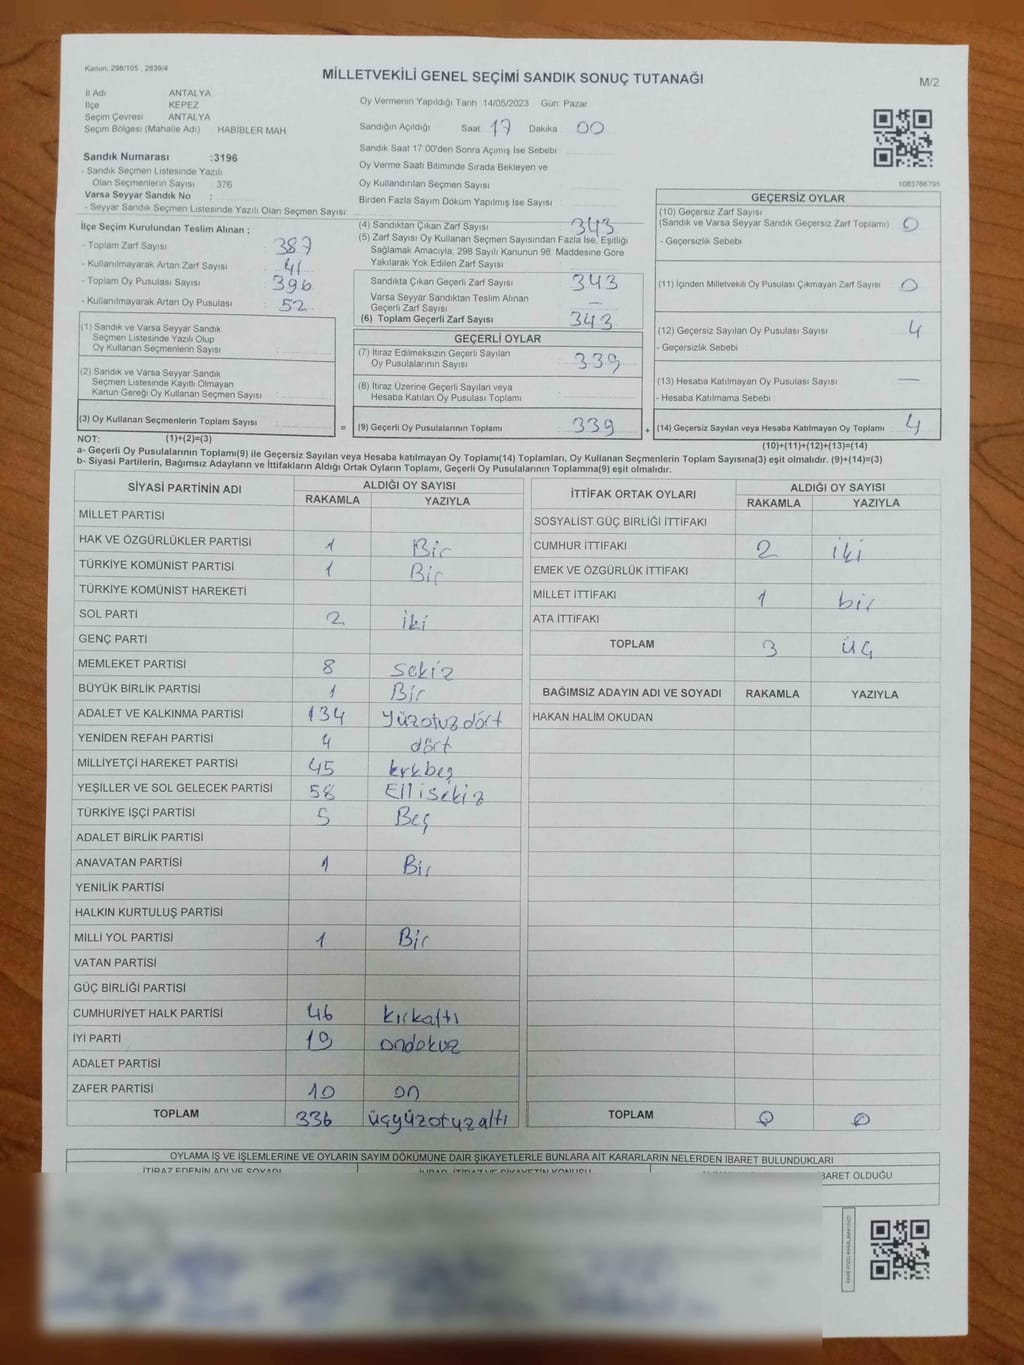 Kanun; 298/105 , 2839/4
MİLLETVEKİLİ GENEL SEÇİMİ SANDIK SONUÇ TUTANAĞI
M/2
İl Adı : ANTALYA
İlçe : KEPEZ
Seçim Çevresi : ANTALYA
Seçim Bölgesi (Mahalle Adı) : HABİBLER MAH
Oy Vermenin Yapıldığı Tarih 14/05/2023 Gün: Pazar
Sandığın Açıldığı Saat 17 Dakika 00
Sandık Saat 17.00'den Sonra Açımış İse Sebebi :
Oy Verme Saati Bitiminde Sırada Bekleyen ve
Oy Kullandırılan Seçmen Sayısı :
Birden Fazla Sayım Döküm Yapılmış İse Sayısı :
1083766795
Sandık Numarası :3196
- Sandık Seçmen Listesinde Yazılı
Olan Seçmenlerin Sayısı : 376
Varsa Seyyar Sandık No :
- Seyyar Sandık Seçmen Listesinde Yazılı Olan Seçmen Sayısı:
İlçe Seçim Kurulundan Teslim Alınan ;
- Toplam Zarf Sayısı : 387
- Kullanılmayarak Artan Zarf Sayısı : 41
- Toplam Oy Pusulası Sayısı : 396
- Kullanılmayarak Artan Oy Pusulası : 52
(1) Sandık ve Varsa Seyyar Sandık
Seçmen Listesinde Yazılı Olup
Oy Kullanan Seçmenlerin Sayısı :
(2) Sandık ve Varsa Seyyar Sandık
Seçmen Listesinde Kayıtlı Olmayan
Kanun Gereği Oy Kullanan Seçmen Sayısı :
(3) Oy Kullanan Seçmenlerin Toplam Sayısı :
(1)+(2)=(3)
(4) Sandıktan Çıkan Zarf Sayısı : 343
(5) Zarf Sayısı Oy Kullanan Seçmen Sayısından Fazla İse, Eşitliği
Sağlamak Amacıyla, 298 Sayılı Kanunun 98. Maddesine Göre
Yakılarak Yok Edilen Zarf Sayısı :
Sandıkta Çıkan Geçerli Zarf Sayısı : 343
Varsa Seyyar Sandıktan Teslim Alınan
Geçerli Zarf Sayısı : —
(6) Toplam Geçerli Zarf Sayısı : 343
GEÇERLİ OYLAR
(7) İtiraz Edilmeksizin Geçerli Sayılan
Oy Pusulalarının Sayısı : 339
(8) İtiraz Üzerine Geçerli Sayılan veya
Hesaba Katılan Oy Pusulası Toplamı :
= (9) Geçerli Oy Pusulalarının Toplamı : 339 +
GEÇERSİZ OYLAR
(10) Geçersiz Zarf Sayısı
(Sandık ve Varsa Seyyar Sandık Geçersiz Zarf Toplamı) : 0
- Geçersizlik Sebebi :
(11) İçinden Milletvekili Oy Pusulası Çıkmayan Zarf Sayısı : 0
(12) Geçersiz Sayılan Oy Pusulası Sayısı : 4
- Geçersizlik Sebebi :
(13) Hesaba Katılmayan Oy Pusulası Sayısı : —
- Hesaba Katılmama Sebebi :
(14) Geçersiz Sayılan veya Hesaba Katılmayan Oy Toplamı : 4
(10)+(11)+(12)+(13)=(14)
NOT:
a- Geçerli Oy Pusulalarının Toplamı(9) ile Geçersiz Sayılan veya Hesaba katılmayan Oy Toplamı(14) Toplamları, Oy Kullanan Seçmenlerin Toplam Sayısına(3) eşit olmalıdır. (9)+(14)=(3)
b- Siyasi Partilerin, Bağımsız Adayların ve İttifakların Aldığı Ortak Oyların Toplamı, Geçerli Oy Pusulalarının Toplamına(9) eşit olmalıdır.
SİYASİ PARTİNİN ADI ALDIĞI OY SAYISI
RAKAMLA YAZIYLA
MİLLET PARTİSİ
HAK VE ÖZGÜRLÜKLER PARTİSİ 1 Bir
TÜRKİYE KOMÜNİST PARTİSİ 1 Bir
TÜRKİYE KOMÜNİST HAREKETİ
SOL PARTİ 2 iki
GENÇ PARTİ
MEMLEKET PARTİSİ 8 sekiz
BÜYÜK BİRLİK PARTİSİ 1 Bir
ADALET VE KALKINMA PARTİSİ 134 Yüzotuzdört
YENİDEN REFAH PARTİSİ 4 dört
MİLLİYETÇİ HAREKET PARTİSİ 45 kırkbeş
YEŞİLLER VE SOL GELECEK PARTİSİ 58 Ellisekiz
TÜRKİYE İŞÇİ PARTİSİ 5 Beş
ADALET BİRLİK PARTİSİ
ANAVATAN PARTİSİ 1 Bir
YENİLİK PARTİSİ
HALKIN KURTULUŞ PARTİSİ
MİLLİ YOL PARTİSİ 1 Bir
VATAN PARTİSİ
GÜÇ BİRLİĞİ PARTİSİ
CUMHURİYET HALK PARTİSİ 46 kırkaltı
İYİ PARTİ 19 ondokuz
ADALET PARTİSİ
ZAFER PARTİSİ 10 on
TOPLAM 336 üçyüzotuzaltı
İTTİFAK ORTAK OYLARI ALDIĞI OY SAYISI
RAKAMLA YAZIYLA
SOSYALİST GÜÇ BİRLİĞİ İTTİFAKI
CUMHUR İTTİFAKI 2 iki
EMEK VE ÖZGÜRLÜK İTTİFAKI
MİLLET İTTİFAKI 1 bir
ATA İTTİFAKI
TOPLAM 3 üç
BAĞIMSIZ ADAYIN ADI VE SOYADI RAKAMLA YAZIYLA
HAKAN HALİM OKUDAN
TOPLAM 0 0
OYLAMA İŞ VE İŞLEMLERİNE VE OYLARIN SAYIM DÖKÜMÜNE DAİR ŞİKAYETLERLE BUNLARA AİT KARARLARIN NELERDEN İBARET BULUNDUKLARI
İTİRAZ EDENİN ADI VE SOYADI